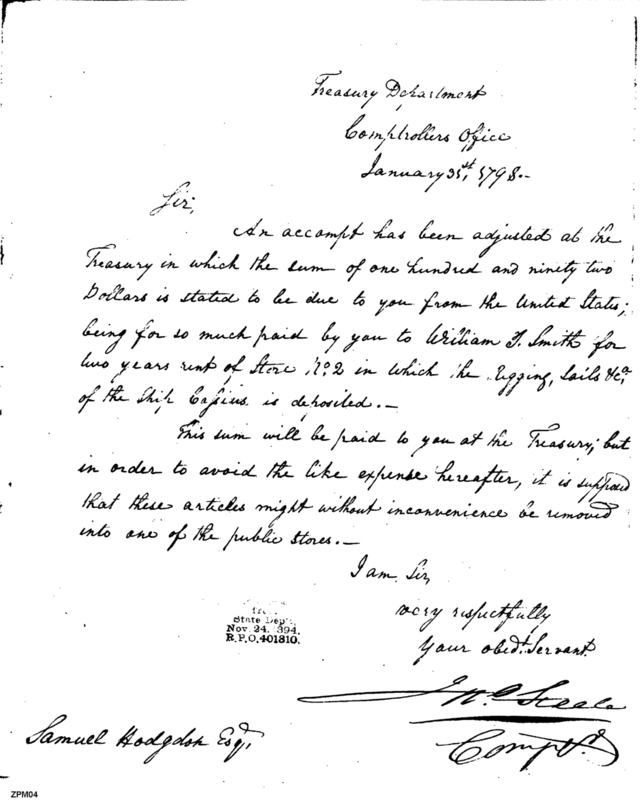 Treasury Department
Comptrollers Office
January 31st, 1798.-
Sir,
An accompt has been adjusted at the
Treasury in which the sum of one hundred and ninety two
Dollars is stated to be due to you from the United States;
being for so much paid by you to William T. Smith for
two years rent of Store No. 2 in which the Rigging, Sails &ca.
of the Ship Cassius is deposited.-
This sum will be paid to you at the Treasury; but
in order to avoid the like expense hereafter, it is supposed
that these articles might without inconvenience be removed
into one of the public stores.-
I am Sir,
very respectfully
Your obedt. Servant
Jno. Steele
Compr.
State Dept.
Nov. 24. 1894.
R.P.O. 401810.
Samuel Hodgdon Esqr.
ZPM04